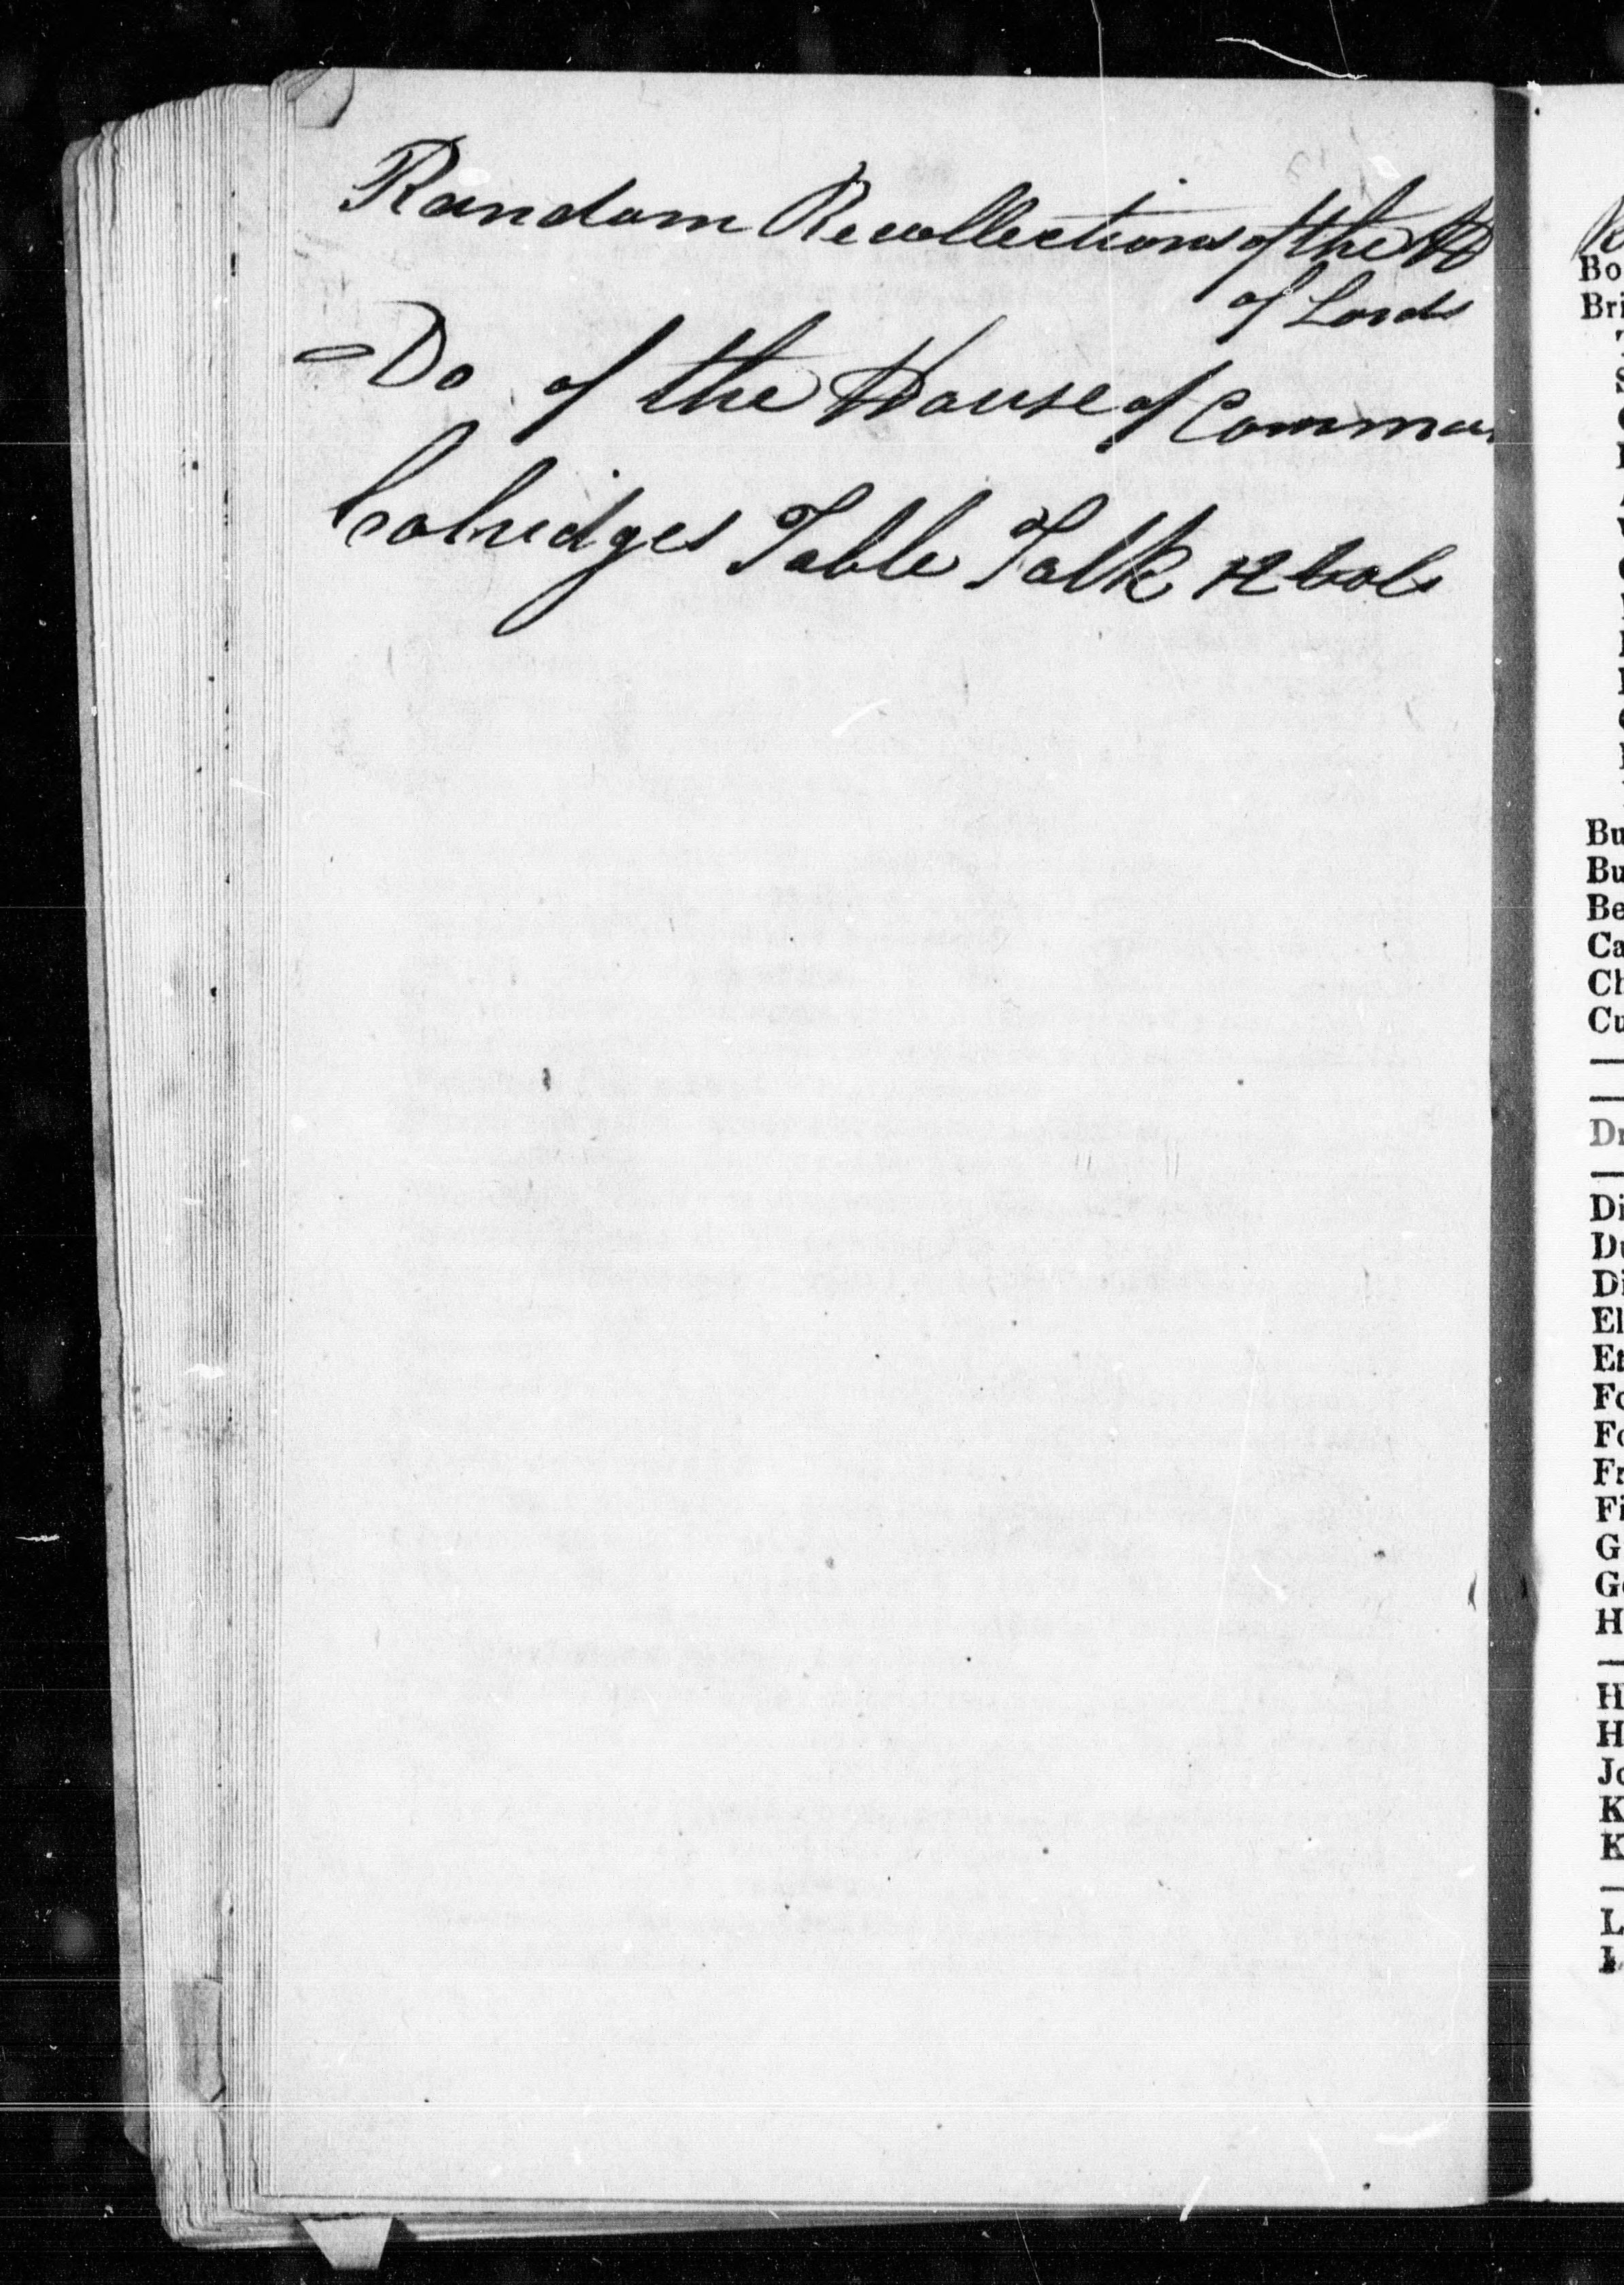 Random Recollections of the H
of Lords
- Do of the House of Common
Colridges Table Talk 2 Vols
Bo
Bri
Bu
Bu
Be
Ca
Ch
Cu
Dr
Di
Du
Di
El
Et
Fo
Fo
Fr
Fi
G
Ge
H
H
H
Jo
K
K
L